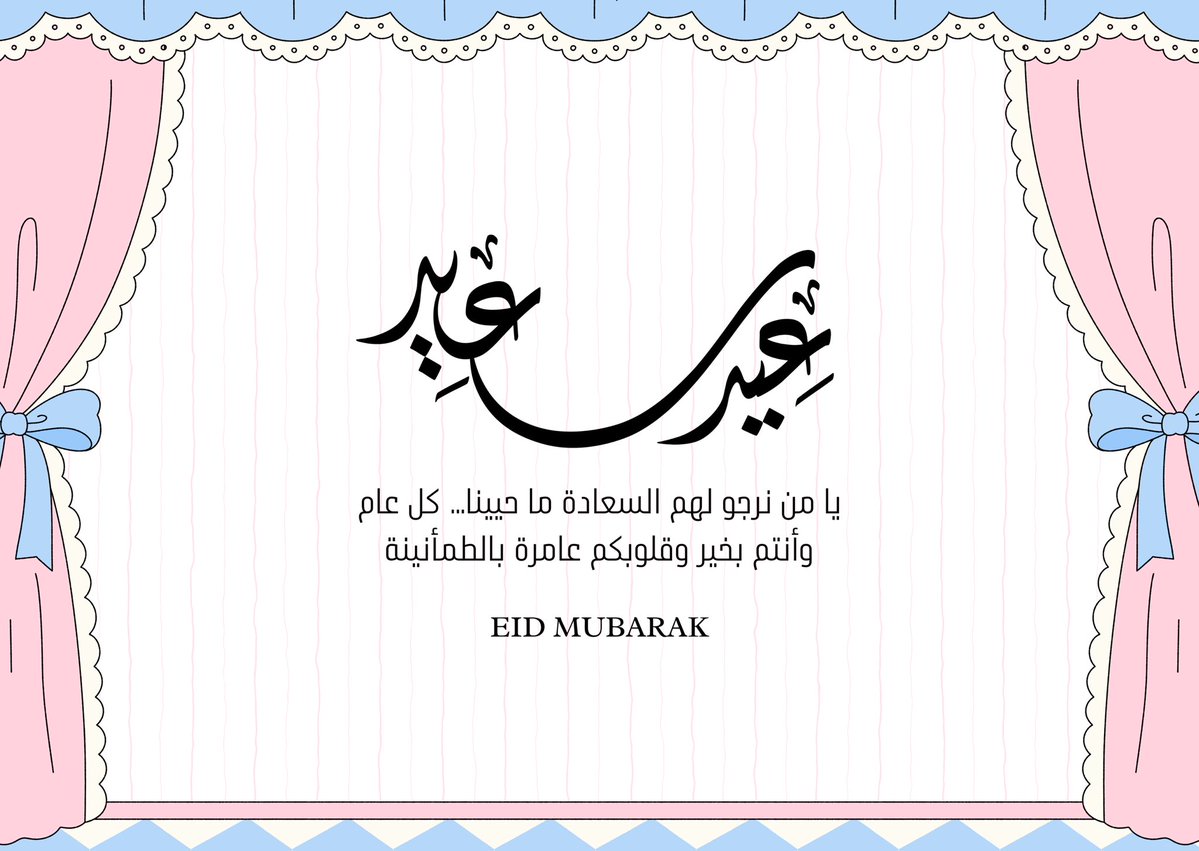 عيد سعيد
يا من نرجو لهم السعادة ما حيينا... كل عام
وأنتم بخير وقلوبكم عامرة بالطمأنينة
EID MUBARAK